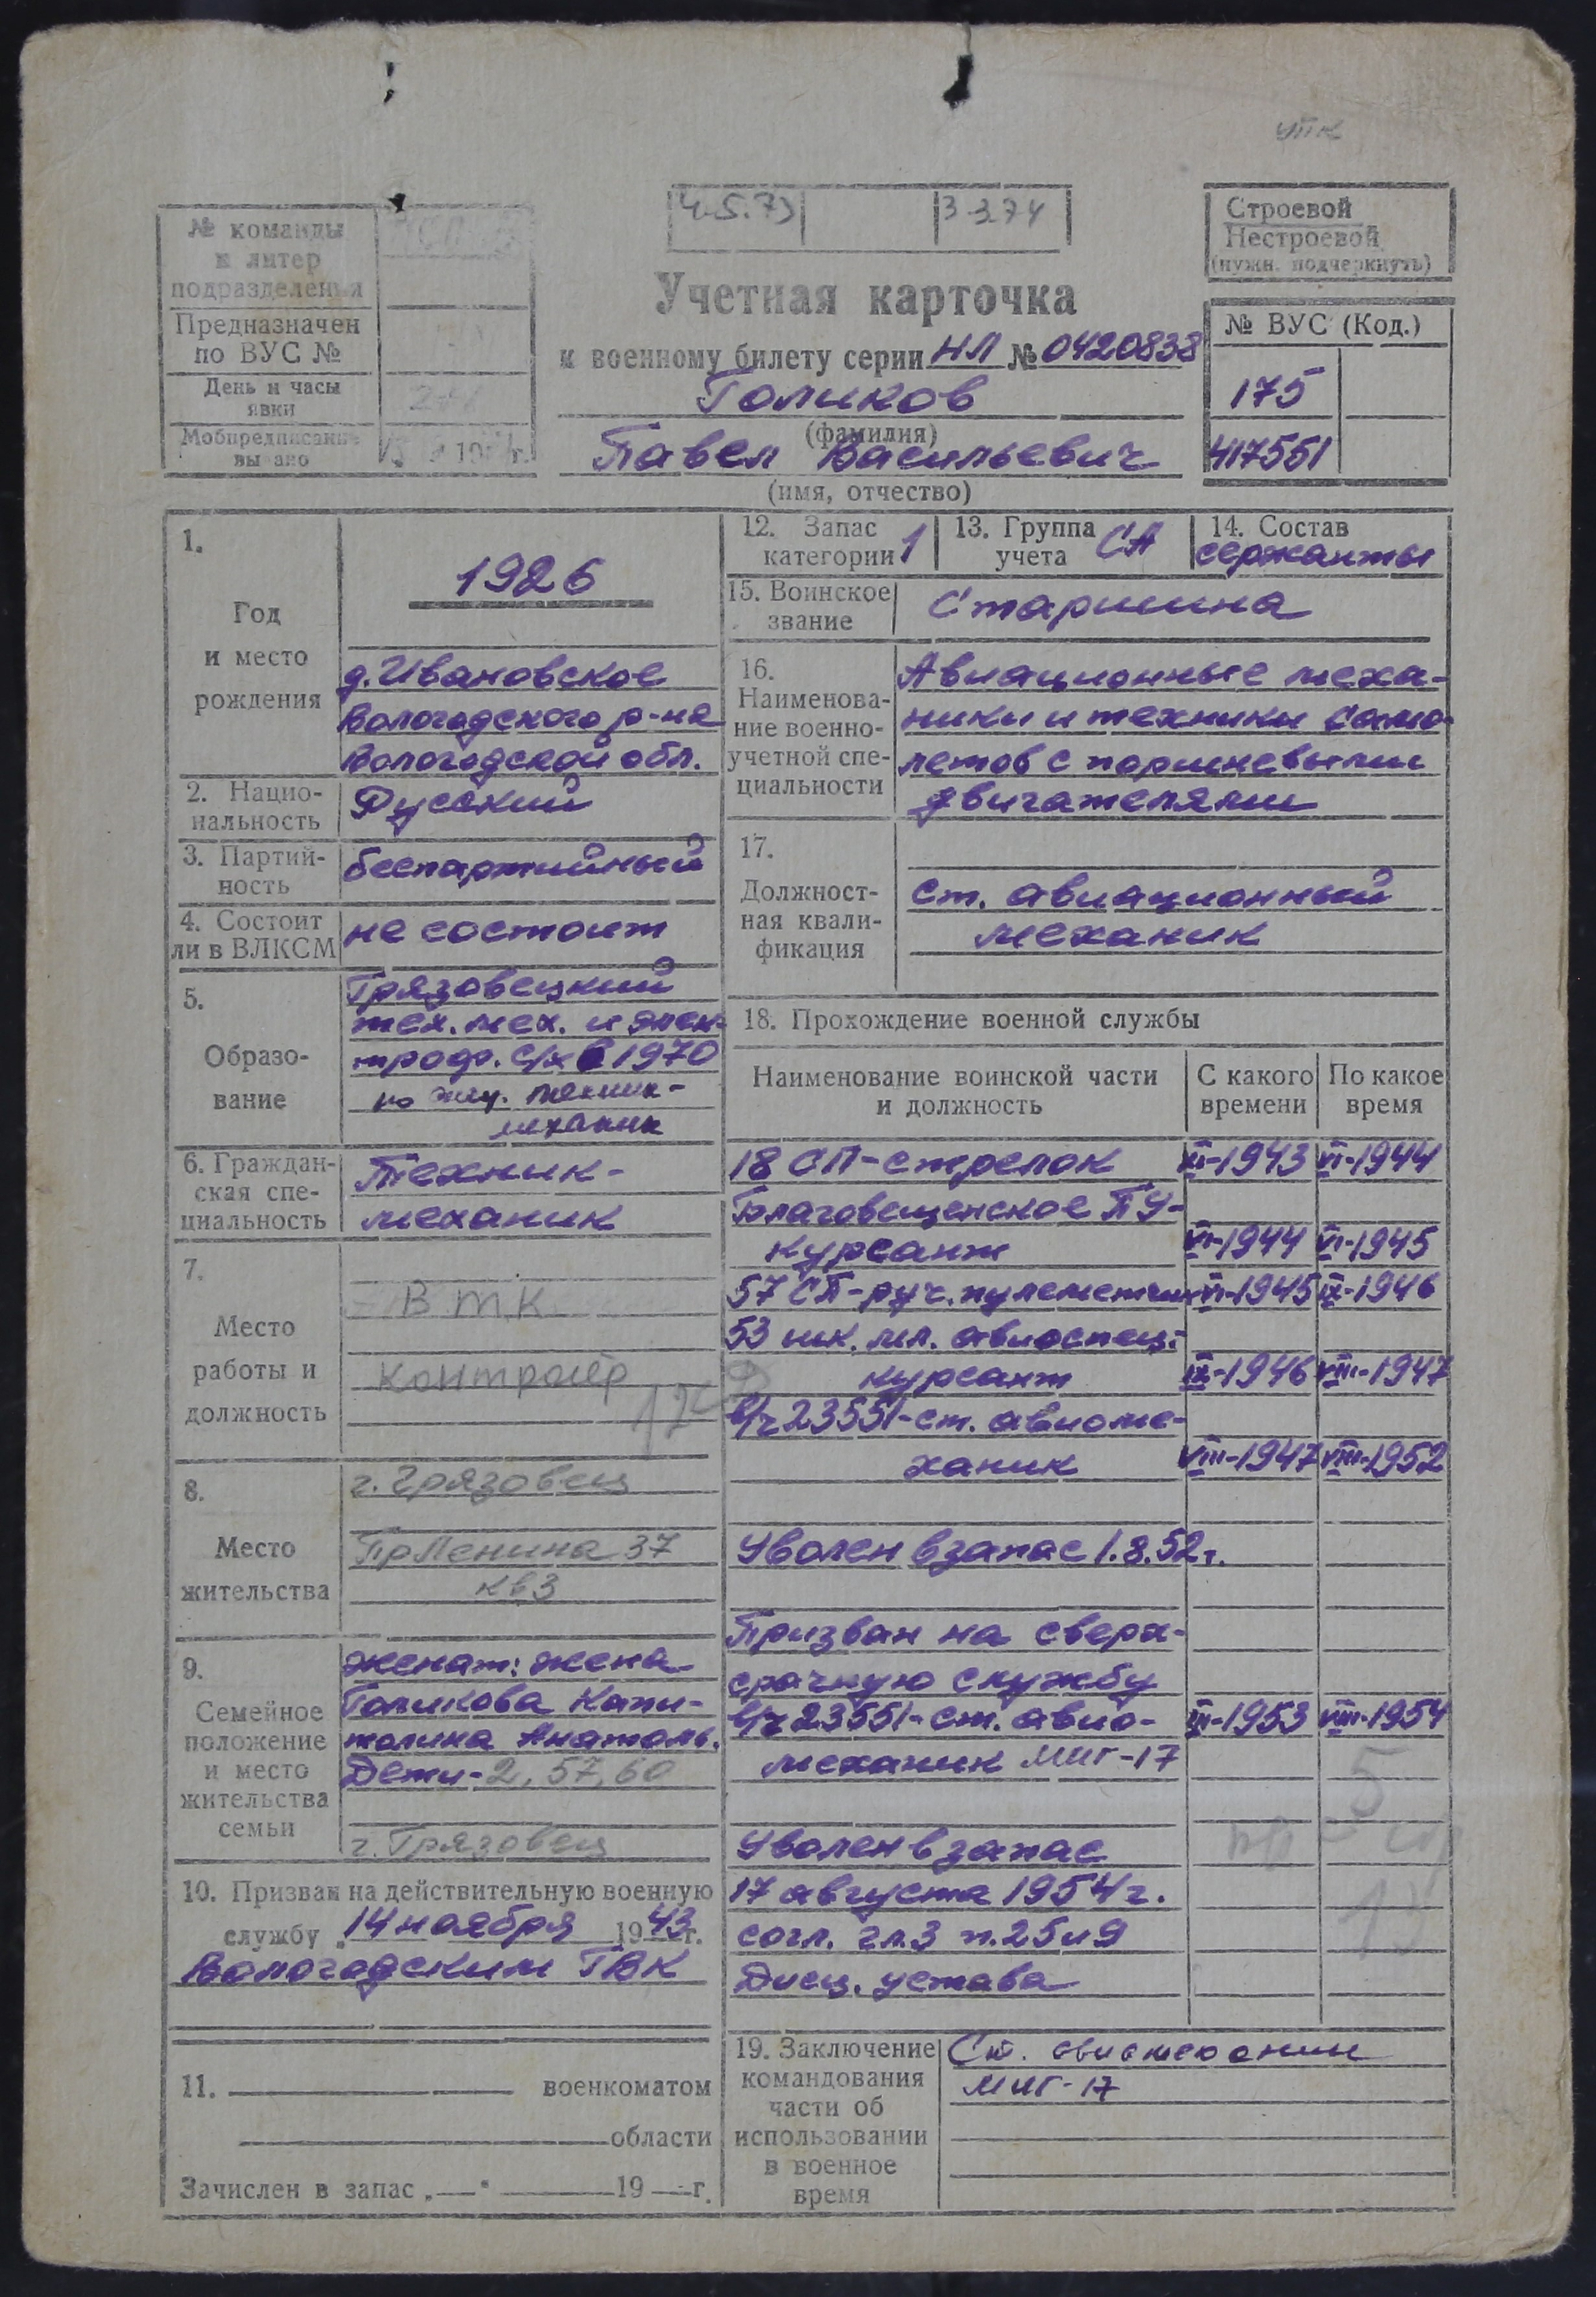 упк
4.5.73
3-3.74
Строевой
Нестроевой
(нужн. подчеркнуть)
№ команды
и литер
подразделения
Предназначен
по ВУС №
День и часы
явки
Мобпредписание
выдано
Учетная карточка
к военному билету серии НЛ № 0420838
Голиков
(фамилия)
Павел Васильевич
(имя, отчество)
№ ВУС (Код.)
175
417551
1.
Год
и место
рождения
1926
д. Ивановское
Вологодского р-на
Вологодской обл.
2. Нацио-
нальность
Русский
3. Партий-
ность
беспартийный
4. Состоит
ли в ВЛКСМ
не состоит
5.
Образо-
вание
Грязовецкий
тех. мех. и элек-
троф. с/х в 1970
по спец. техник-
механик
6. Граждан-
ская спе-
циальность
Техник-
механик
7.
Место
работы и
должность
ВТК
контролёр
8.
Место
жительства
г. Грязовец
Пр Ленина 37
кв 3
9.
Семейное
положение
и место
жительства
семьи
женат: жена
Голикова Капи-
толина Анатоль.
Дети-2, 57, 60
г. Грязовец
10. Призван на действительную военную
службу „14 ноября 1943г.
Вологодским ГВК
11. военкоматом
области
Зачислен в запас „ “ 19 г.
12. Запас
категории 1
13. Группа
учета СА
14. Состав
сержанты
15. Воинское
звание
Старшина
16.
Наименова-
ние военно-
учетной спе-
циальности
Авиационные меха-
ники и техники само-
летов с поршневыми
двигателями
17.
Должност-
ная квали-
фикация
ст. авиационный
механик
18. Прохождение военной службы
Наименование воинской части
и должность
С какого
времени
По какое
время
18 СП-стрелок XI-1943 VI-1944
Благовещенское ПУ-
курсант VI-1944 VI-1945
57 СП-руч. пулеметчик VI-1945 IX-1946
53 шк. мл. авиоспец.-
курсант IX-1946 VIII-1947
в/ч 23551-ст. авиоме-
ханик VIII-1947 VIII-1952
Уволен в запас 1.8.52г.
Призван на сверх-
срочную службу
в/ч 23551-ст. авио- III-1953 VIII-1954
механик МИГ-17
Уволен в запас
17 августа 1954г.
согл. гл.3 п.25 и 9
Дисц. устава
5
19. Заключение
командования
части об
использовании
в военное
время
Ст. авиамеханик
МИГ-17